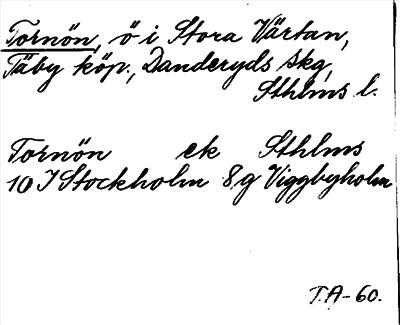 Tornön, ö i Stora Värtan,
Täby köp., Danderyds skg,
Sthlms l.
Tornön ek Sthlms
10 I Stockholm 8 g Viggbyholm
T.A-60.